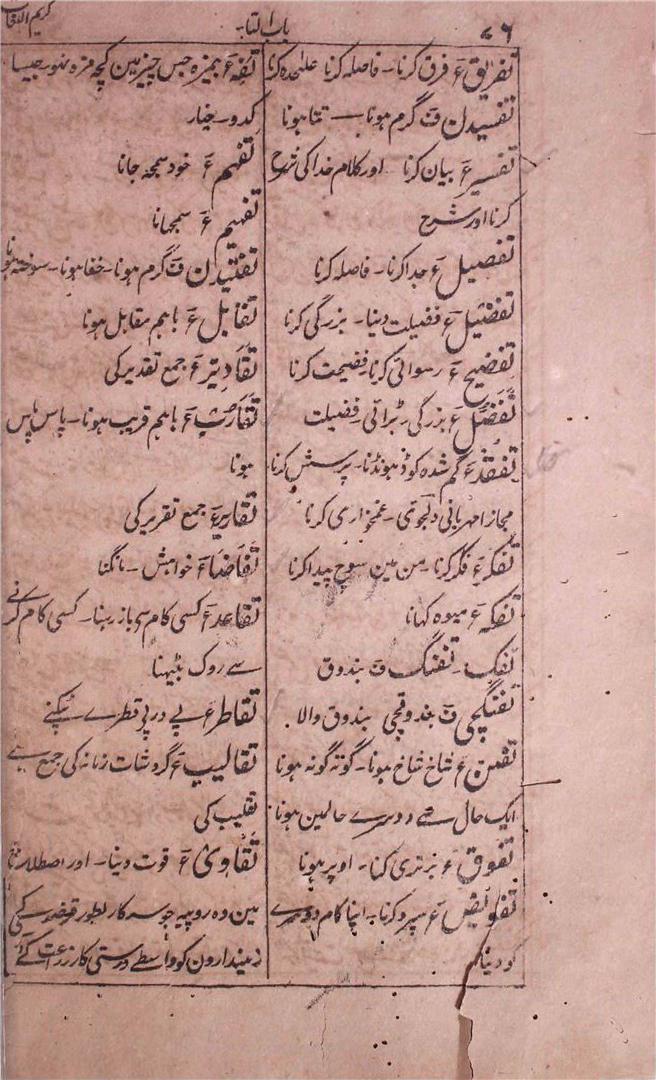 ۷۶
باب التا
کریم اللغات
تفریق ع فرق کرنا۔ فاصلہ کرنا علٰحدہ کرنا
تفسیدن ف گرم ہونا۔ تتا ہونا
تفسیر ع بیان کرنا اور کلام خدا کی شرح
کرنا اور شرح
تفصیل ع جدا کرنا۔ فاصلہ کرنا
تفضیل ع فضیلت دینا۔ بزرگی کرنا
تفضیح ع رسوائی کرنا۔ فضیحت کرنا
تفضل ع بزرگی۔ بڑائی۔ فضیلت
تفقد ع گم شدہ کو ڈھونڈنا۔ پرسش کرنا
مجازا مہربانی دلجوئی۔ غمخواری کرنا
تفکر ع فکر کرنا۔ من مین سوچ پیدا کرنا
تفکہ ع میوہ کہانا
تفک۔ تفنگ ف بندوق
تفنگچی ف بندوقچی بندوق والا
تفنن ع شاخ شاخ ہونا۔ گونہ گونہ ہونا
ایک حال سے دوسرے حالمین ہونا
تفوق ع برتری کرنا۔ اوپر ہونا
تفویض ع سپرد کرنا۔ اپنا کام دوسرے
کو دینا
تفہ ع بیمزہ جس چیز مین کچھ مزہ نہو۔ جیسا
کدو۔ خیار
تفہم ع خود سمجہ جانا
تفہیم ع سمجہانا
تفتیدن ف گرم ہونا۔ خفا ہونا۔ سوختہ ہونا
تقابل ع باہم مقابل ہونا
تقادیر ع جمع تقدیر کی
تقارب ع باہم قریب ہونا۔ پاس پاس
ہونا
تقاریر ع جمع تقریر کی
تقاضا ع خواہش۔ مانگنا
تقاعد ع کسی کام سے باز رہنا۔ کسی کام کرنے
سے روک بٹیہنا
تقاطر ع پے در پے قطرے ٹپکنے
تقالیب ع گردشات زمانہ کی جمع ہے
تقلیب کی
تقاوی ع قوت دینا۔ اور اصطلاح
مین وہ روپیہ جو سرکار بطور قرضہ کے
زمیندارون کو واسطے درستی کار زراعت کے